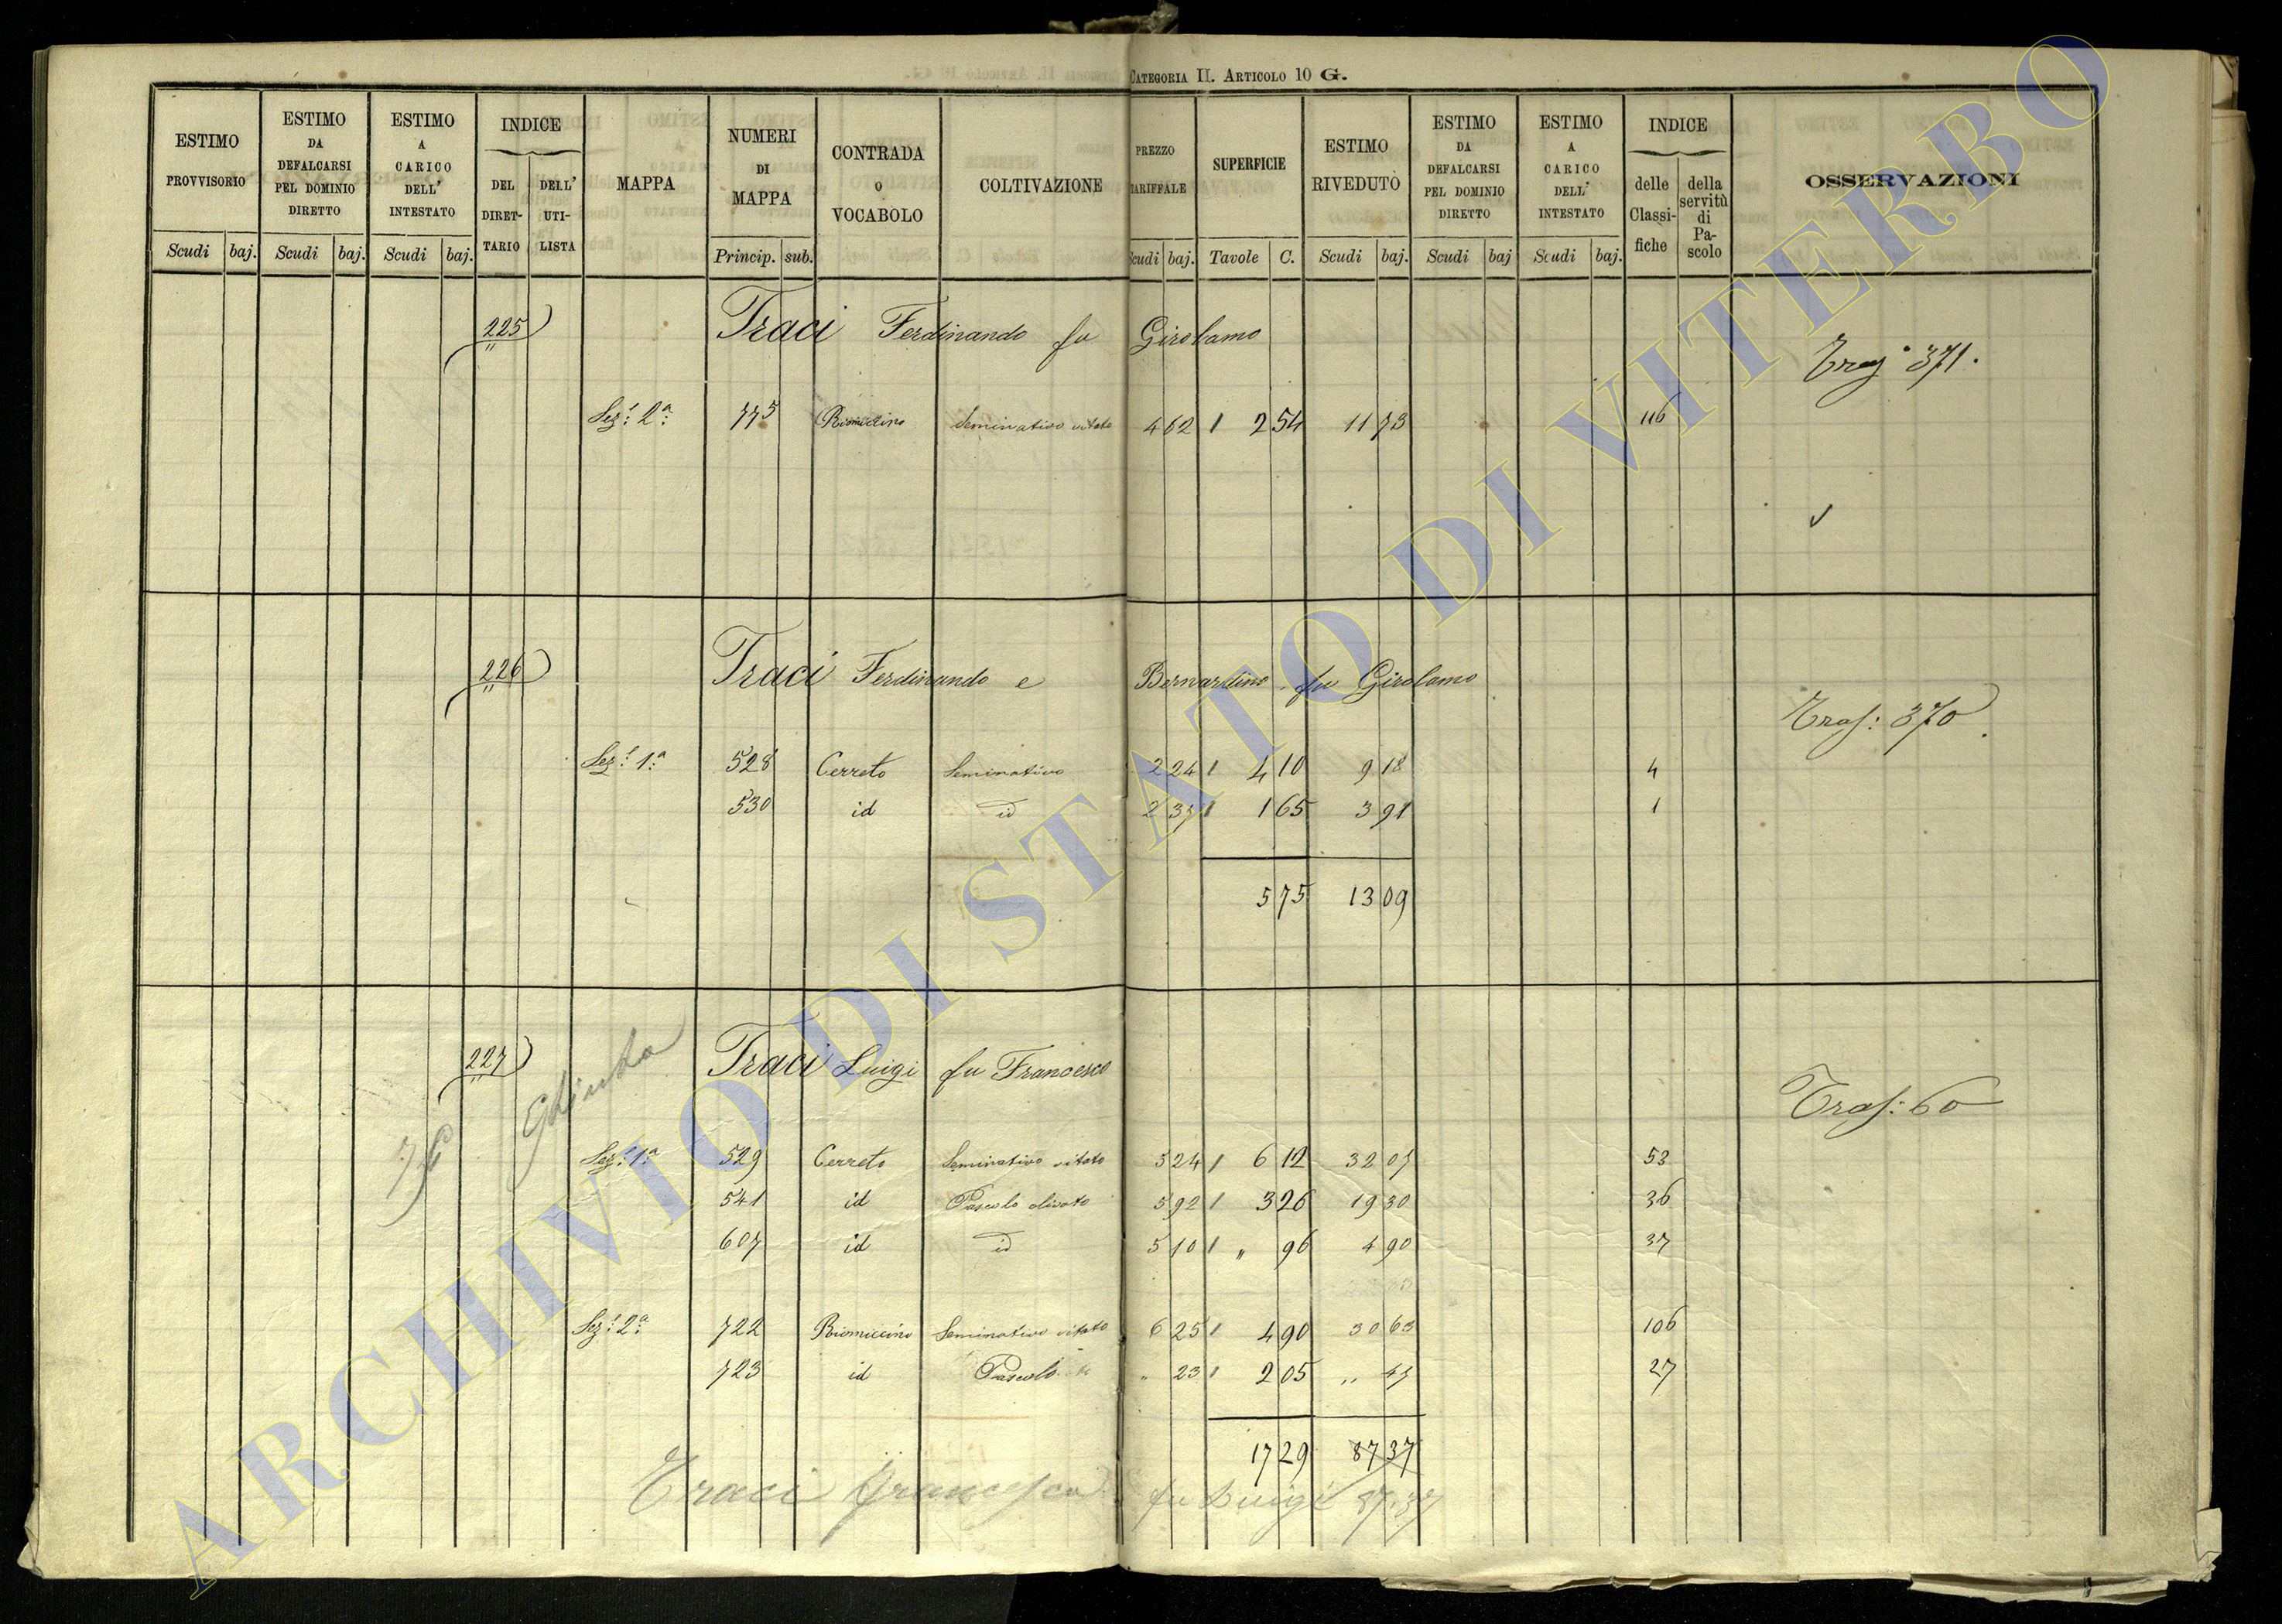 CATEGORIA II. ARTICOLO 10 G.
ESTIMO PROVVISORIO Scudi baj.
ESTIMO DA DEFALCARSI PEL DOMINIO DIRETTO Scudi baj.
ESTIMO A CARICO DELL' INTESTATO Scudi baj.
INDICE DEL DIRET-TARIO DELL' UTI-LISTA
MAPPA
NUMERI DI MAPPA Princip. sub.
CONTRADA O VOCABOLO
COLTIVAZIONE
PREZZO TARIFFALE Scudi baj.
SUPERFICIE Tavole C.
ESTIMO RIVEDUTO Scudi baj.
ESTIMO DA DEFALCARSI PEL DOMINIO DIRETTO Scudi baj
ESTIMO A CARICO DELL' INTESTATO Scudi baj.
INDICE delle Classi-fiche della servitù di Pa-scolo
OSSERVAZIONI
225 Traci Ferdinando fu Girolamo
371.
Sez: 2a: 775 Riomiccino Seminativo vitato 4 62 1 2 54 11 73 116
226 Traci Ferdinando e Bernardino fu Girolamo
Tras: 370
Sez: 1a: 528 Cerreto Seminativo 2 24 1 4 10 9 18 4
530 id id 2 37 1 1 65 3 91 1
5 75 13 09
227 Traci Luigi fu Francesco
Tras: 60
Sez: 1a 529 Cerreto Seminativo vitato 5 24 1 6 12 32 07 53
541 id Pascolo olivato 5 92 1 3 26 19 30 36
607 id id 5 10 1 " 96 4 90 37
Sez: 2a: 722 Riomiccino Seminativo vitato 6 25 1 4 90 30 63 106
723 id Pascolo " 23 1 2 05 " 47 27
17 29 87 37
Traci Francesco fu Luigi 87.37
ARCHIVIO DI STATO DI VITERBO